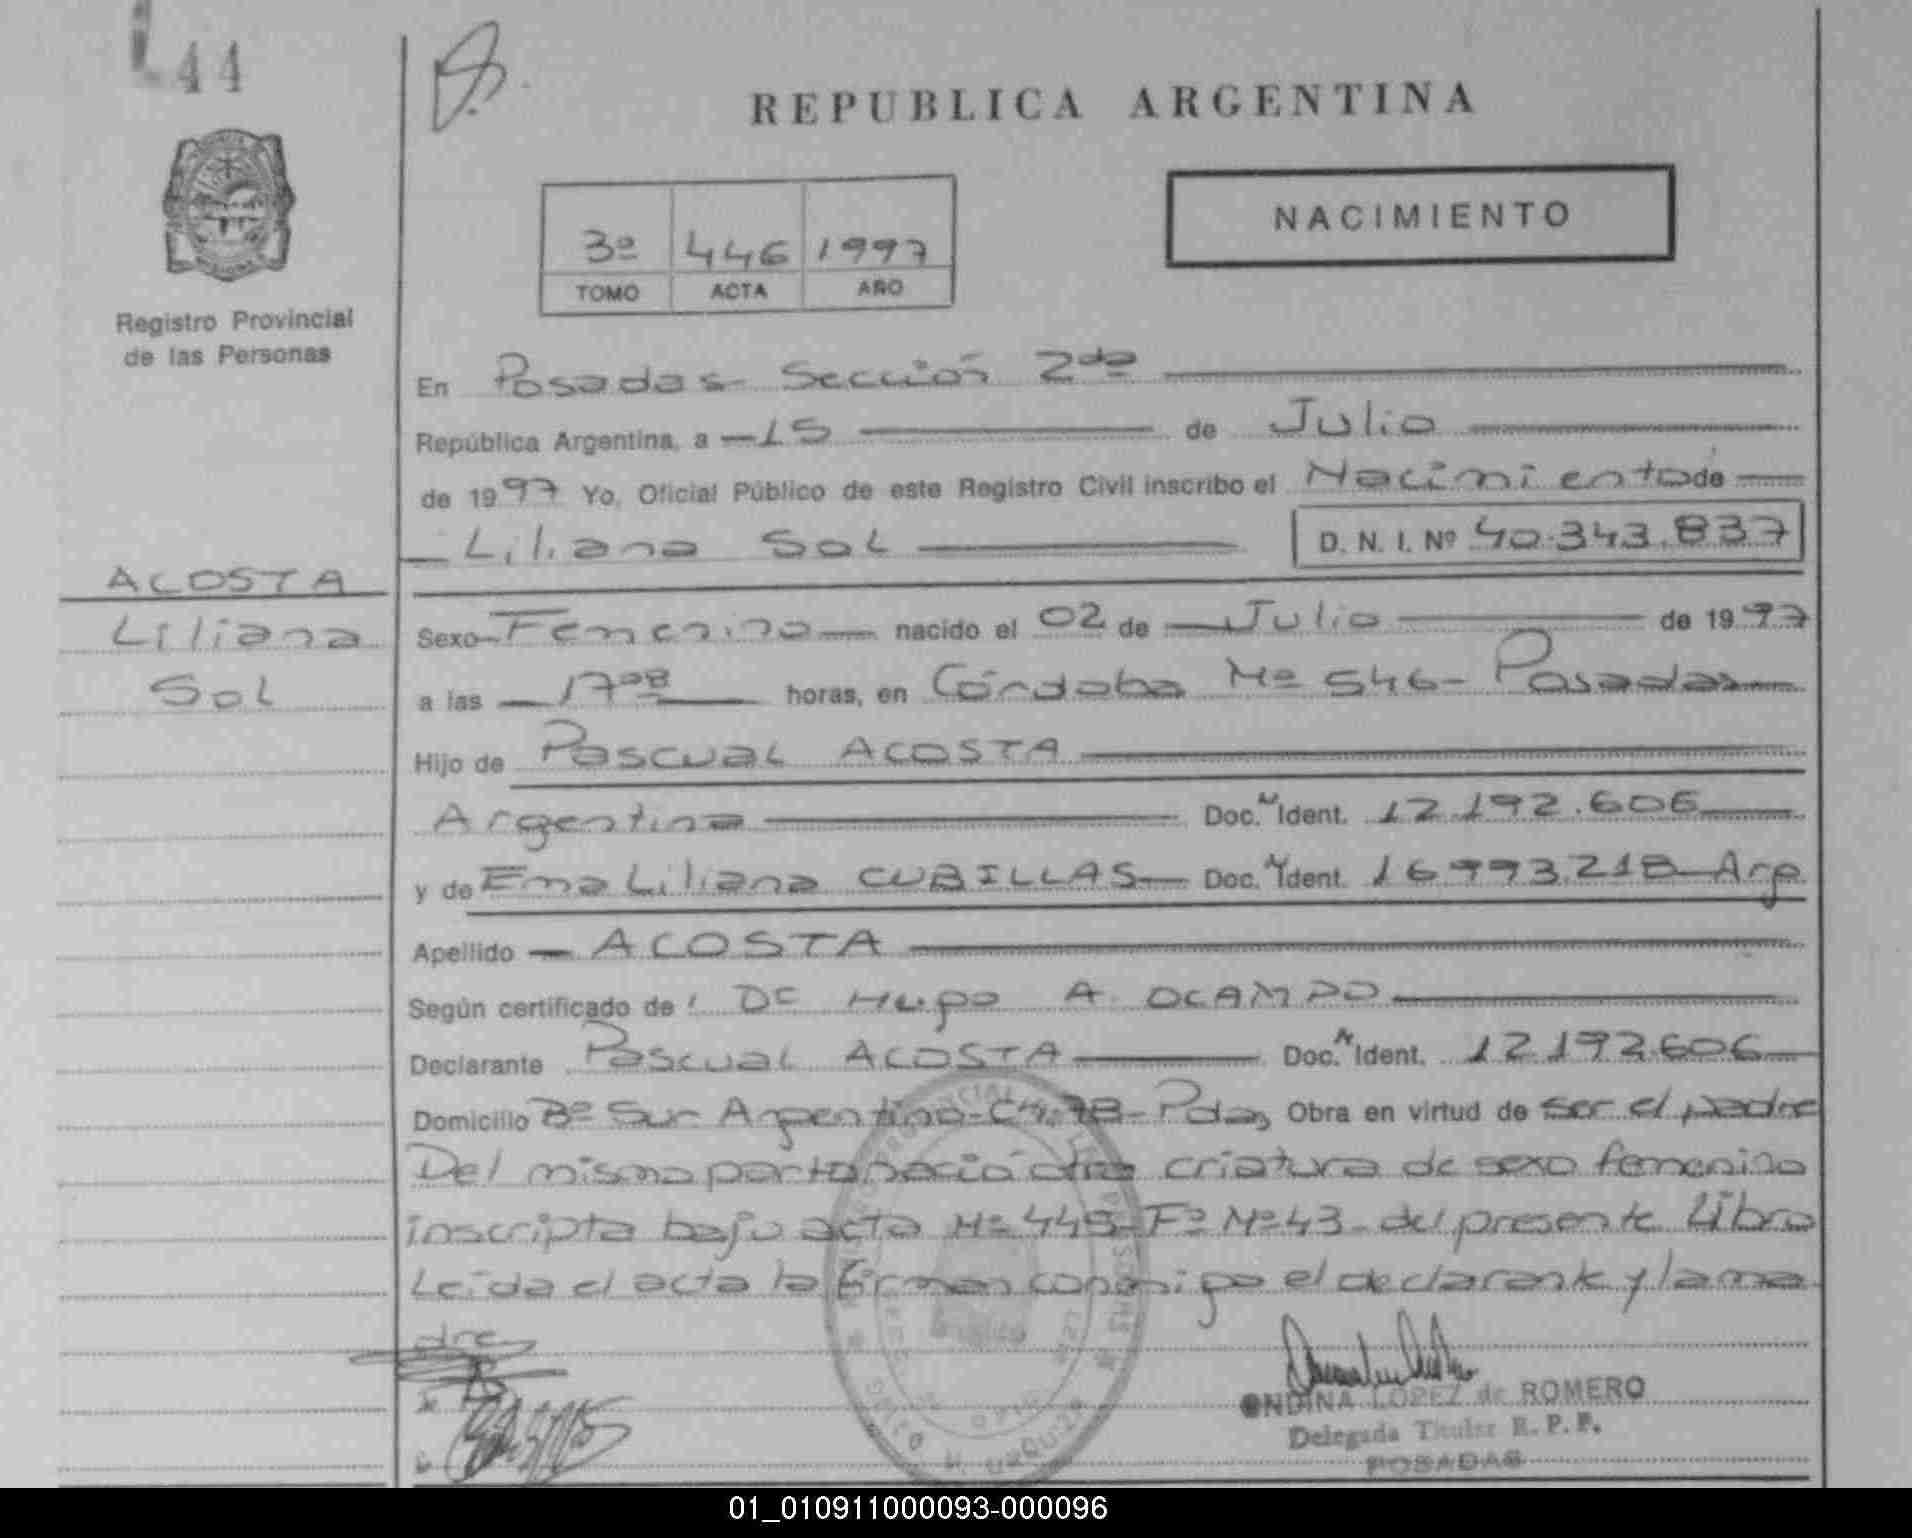 44
REPUBLICA ARGENTINA
NACIMIENTO
3º 446 1997
TOMO ACTA AÑO
Registro Provincial
de las Personas
En Posadas Sección 2da
República Argentina, a 15 de Julio
de 1997 Yo, Oficial Público de este Registro Civil inscribo el Nacimiento de
Liliana Sol D. N. I. Nº 40.343.837
ACOSTA
Liliana
Sol
Sexo Femenino nacido el 02 de Julio de 1997
a las 17 08 horas, en Córdoba Nº 546 - Posadas
Hijo de Pascual ACOSTA
Argentina Doc. N Ident. 12.192.606
y de Ema Liliana CUBILLAS Doc. N Ident. 16.993.218 Arg
Apellido ACOSTA
Según certificado de Dr Hugo A. OCAMPO
Declarante Pascual ACOSTA Doc. N Ident. 12.192.606
Domicilio Bº Sur Argentino - Pdas, Obra en virtud de ser el padre
Del mismo parto nació otra criatura de sexo femenino
inscripta bajo acta Nº 445 - Fº Nº 43 - del presente Libro
Leída el acta la firman conmigo el declarante y la ma
dre
ONDINA LOPEZ de ROMERO
Delegada Titular R. P. P.
POSADAS
01_010911000093-000096